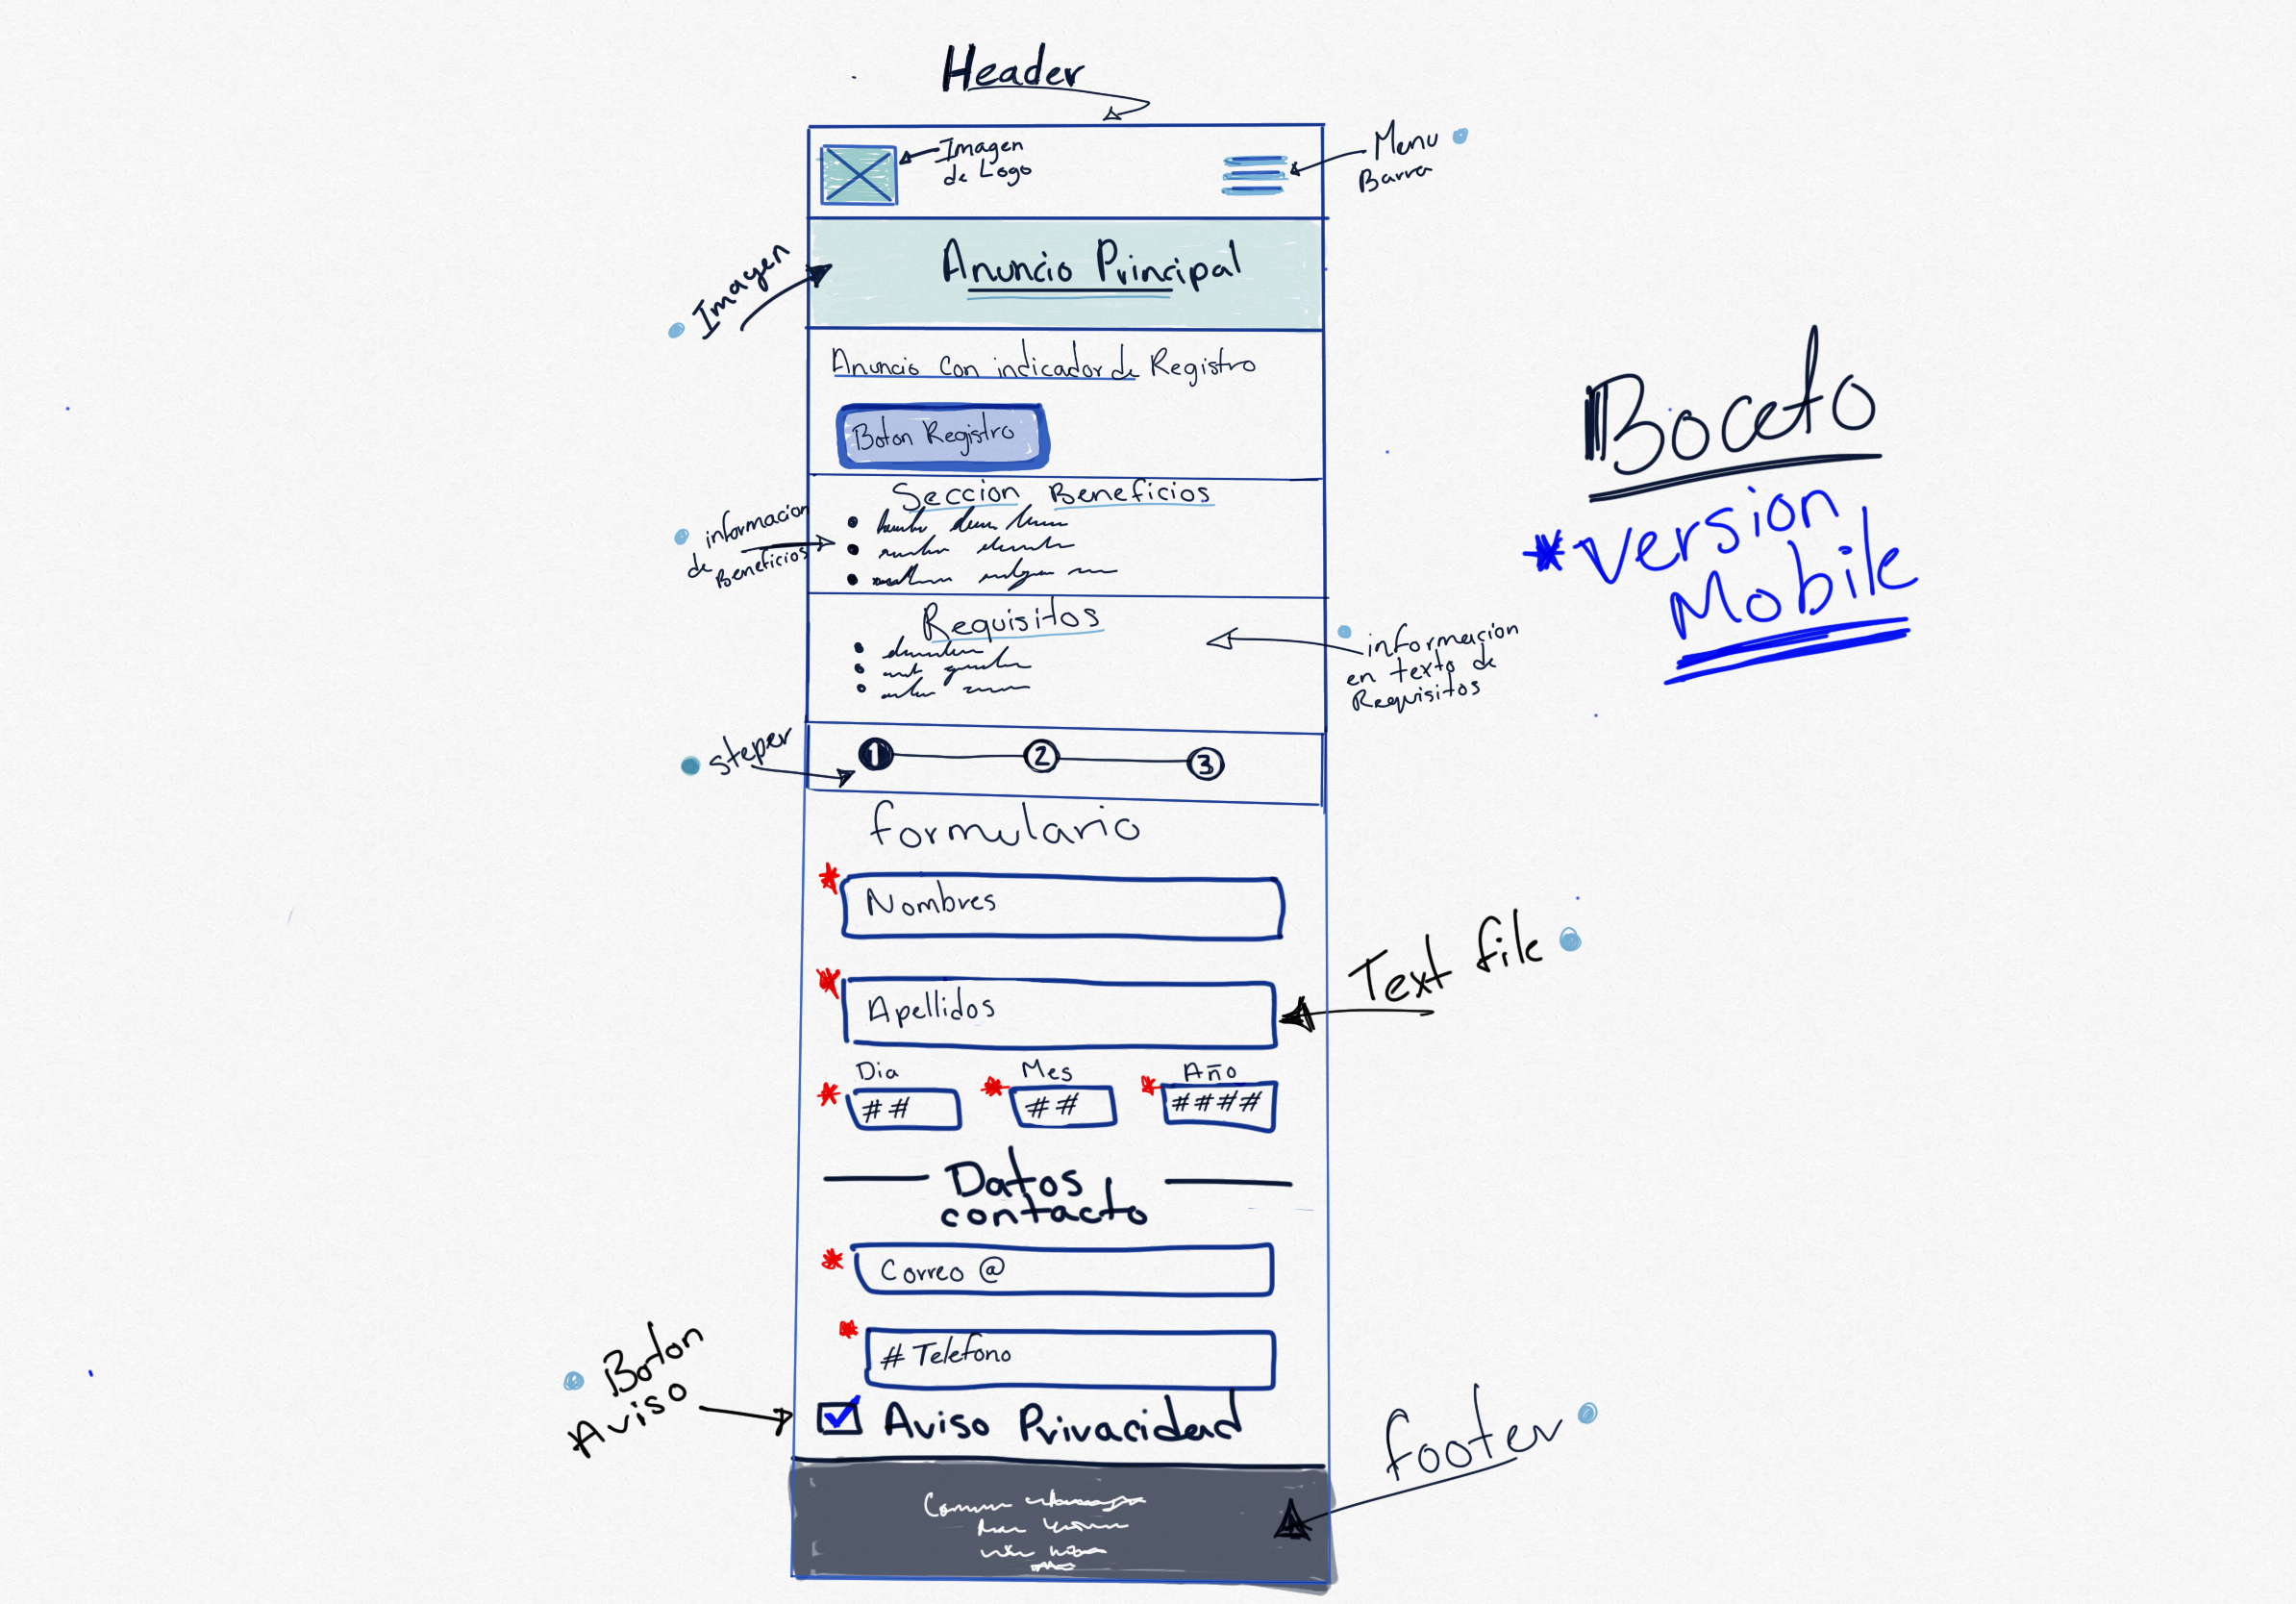 Header
Imagen
de Logo
Menu
Barra
Imagen
Anuncio Principal
Anuncio con indicador de Registro
Boton Registro
Boceto
* version
Mobile
Seccion Beneficios
informacion
de Beneficios
Requisitos
informacion
en texto de
Requisitos
steper
1 2 3
formulario
* Nombres
* Apellidos
Text file
Dia Mes Año
* ## * ## * ####
Datos
contacto
* Correo @
* # Telefono
Boton
Aviso
Aviso Privacidad
footer